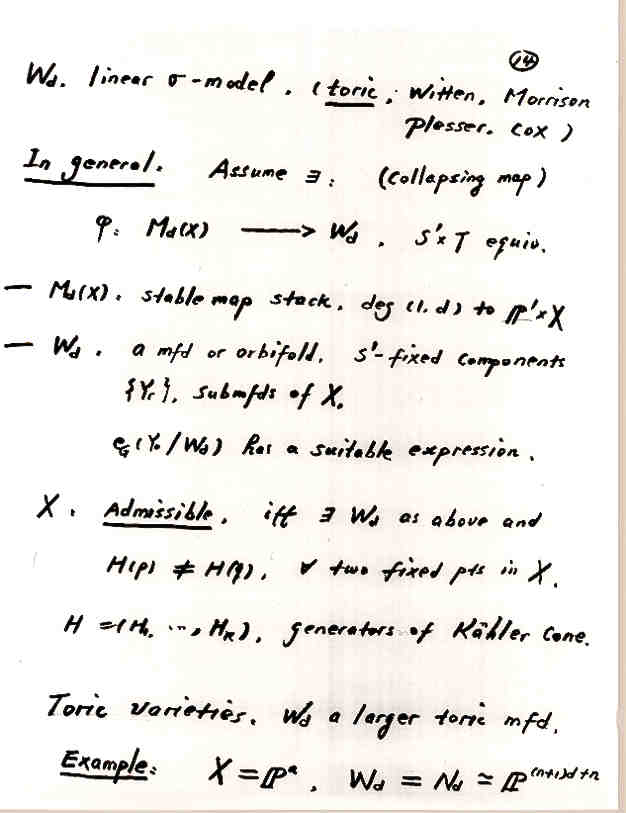 14
W_d. linear σ-model. (toric; Witten, Morrison
Plesser. Cox)
In general. Assume ∃: (Collapsing map)
φ: M_d(X) ⟶ W_d, S'×T equiv.
— M_d(X). stable map stack. deg (1,d) to P'×X
— W_d. a mfd or orbifold. S'-fixed Components
{Y_r}, submfds of X.
e_G(Y_0/W_d) has a suitable expression.
X. Admissible. iff ∃ W_d as above and
H(p) ≠ H(q). ∀ two fixed pts in X.
H = (H_1, ..., H_k), generators of Kähler Cone.
Toric varieties. W_d a larger toric mfd.
Example: X = P^n, W_d = N_d ≃ P^{(n+1)d+n}